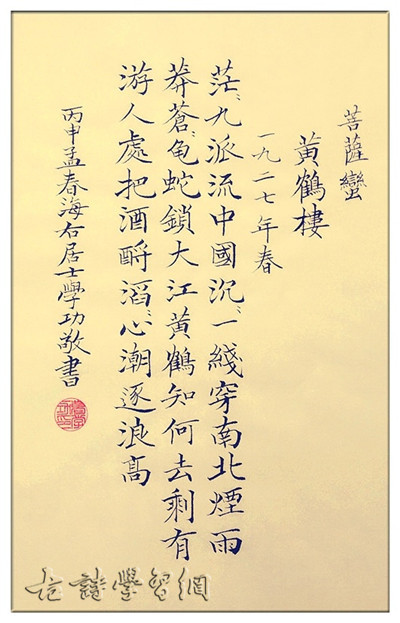 菩薩蠻
黃鶴樓
一九二七年春
茫〻九派流中國沉〻一綫穿南北煙雨
莽蒼〻龜蛇鎖大江黃鶴知何去剩有
游人處把酒酹滔〻心潮逐浪高
丙申孟春海右居士學功敬書